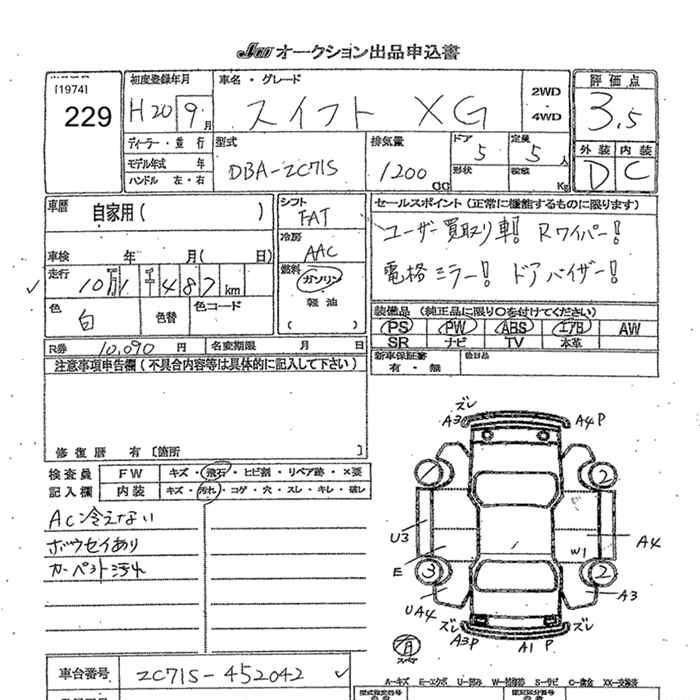 JU オークション出品申込書
[1974]
229
初度登録年月
H20 9 月
ディーラー・並行
モデル年式 年
ハンドル 左・右
車名・グレード
スイフト XG
2WD
・
4WD
型式
DBA-ZC71S
排気量
1200 cc
ドア
5
定員
5 人
形状
積載
Kg
評価点
3.5
外装 内装
D C
車歴
自家用( )
車検 年 月( 日)
走行
10万1千487 km
色
白
色替
色コード
シフト
FAT
冷房
AAC
燃料
ガソリン
軽油
( )
セールスポイント(正常に機能するものに限ります)
ユーザー買取り車! Rワイパー!
電格ミラー! ドアバイザー!
装備品(純正品に限り○を付けてください)
PS PW ABS エアB AW
SR ナビ TV 本革
新車保証書
有・無
後日品
R券 10,090 円
名変期限 月 日
注意事項申告欄(不具合内容等は具体的に記入して下さい)
修復歴 有〔箇所 〕
検査員
記入欄
FW キズ・飛石・ヒビ割・リペア跡・×要
内装 キズ・汚れ・コゲ・穴・スレ・キレ・破レ
AC冷えない
ボウセイあり
カーペット汚れ
ズレ
A3 A4 P
2
U3
A4
E
W1
3
2
UA4
A3
ズレ
A3P
A1 P
ズレ
スペア
車台番号
ZC71S-452042
A-キズ E-エクボ U-凹み W-補修跡 S-サビ C-腐食 XX-交換済